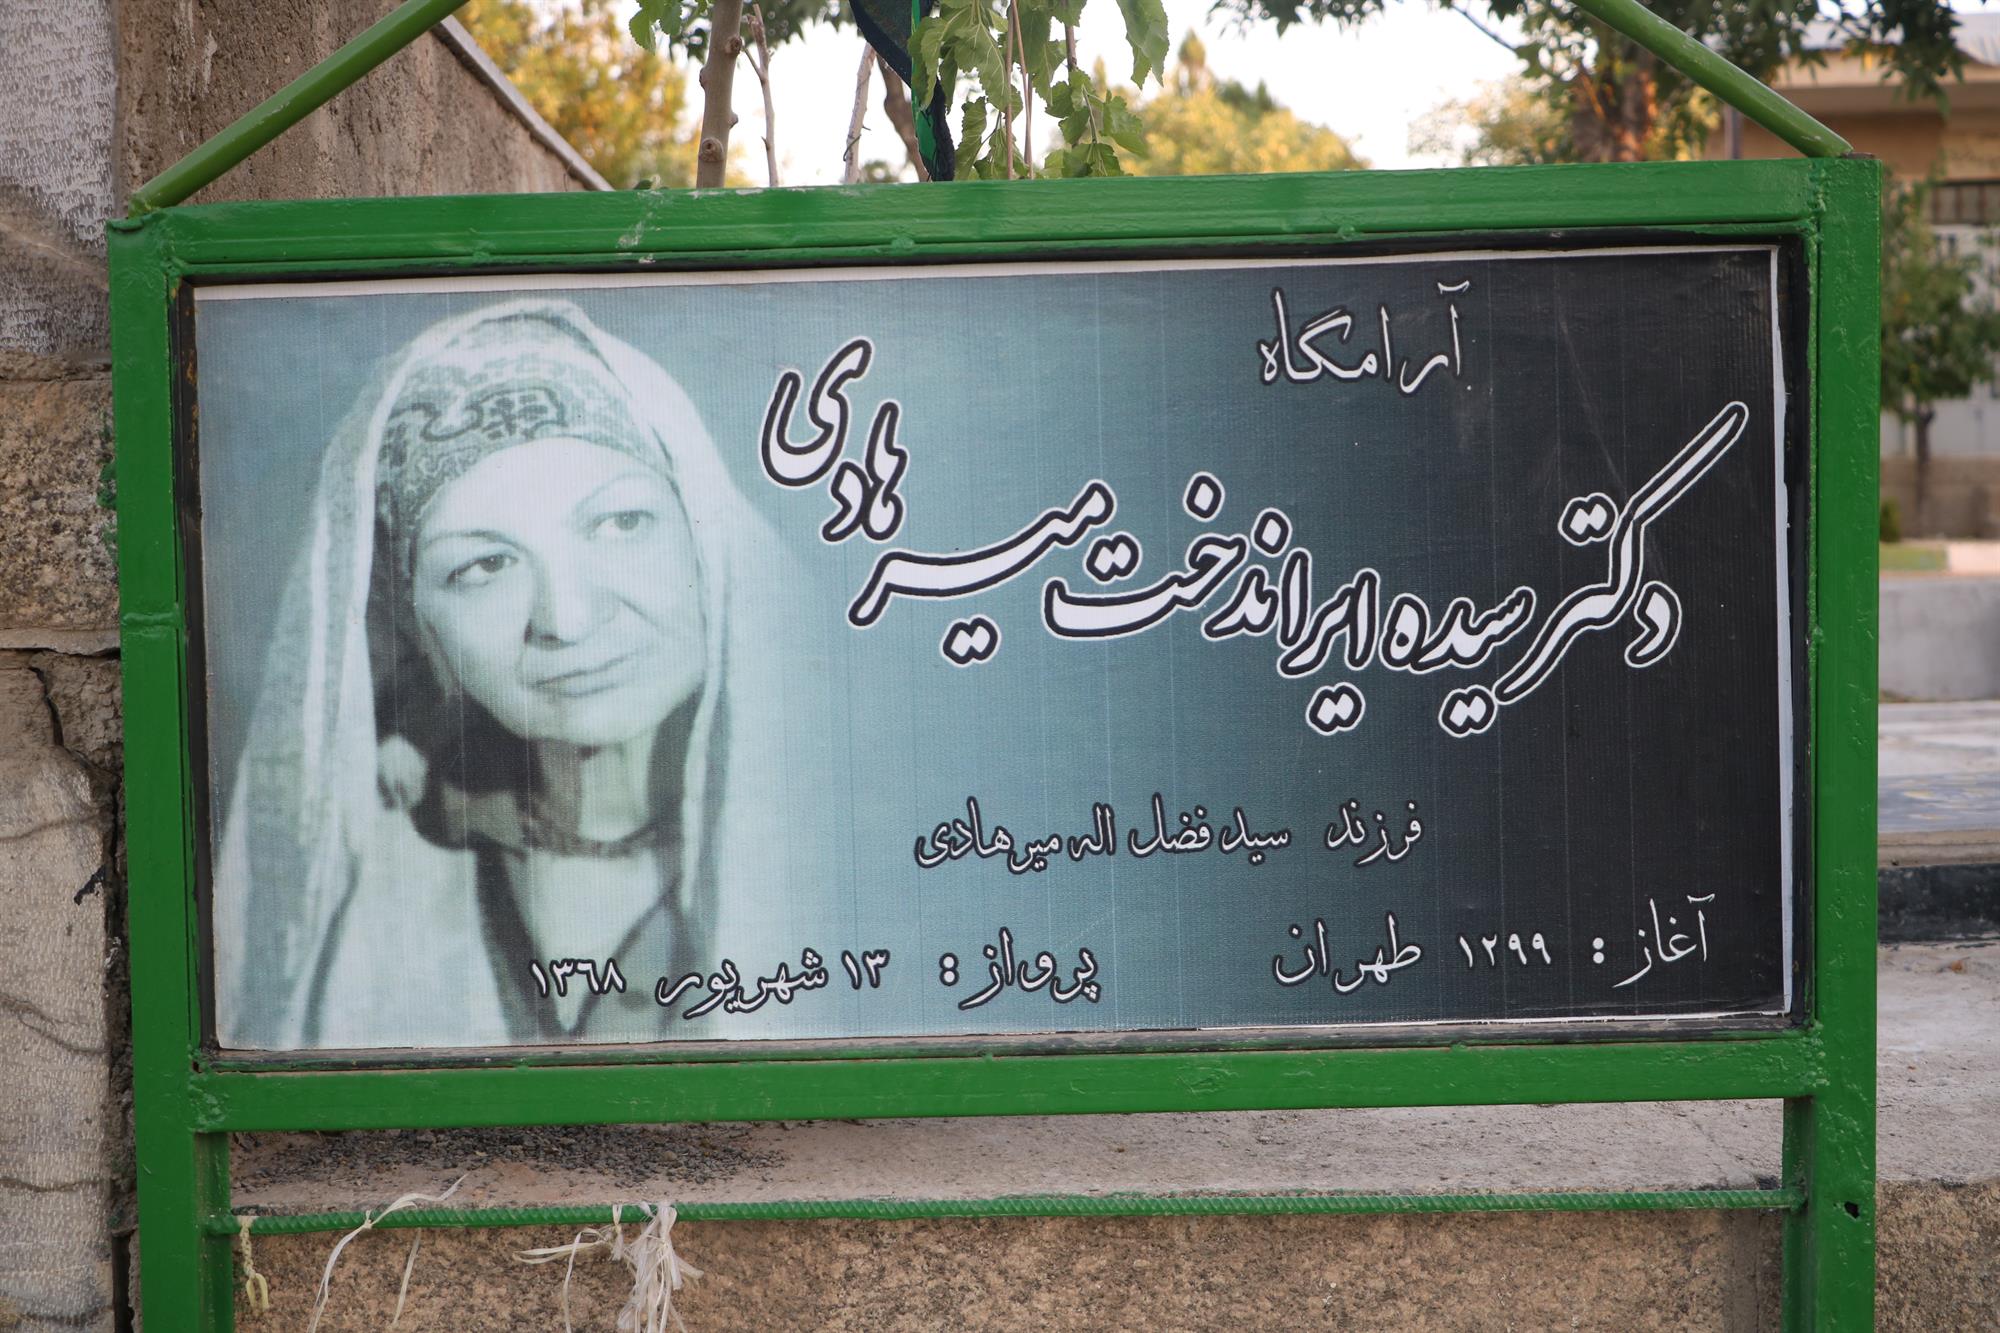 آرامگاه
دکتر سیده ایراندخت میرهادی
فرزند سید فضل اله میرهادی
آغاز : ۱۲۹۹ طهران پرواز : ۱۳ شهریور ۱۳۶۸